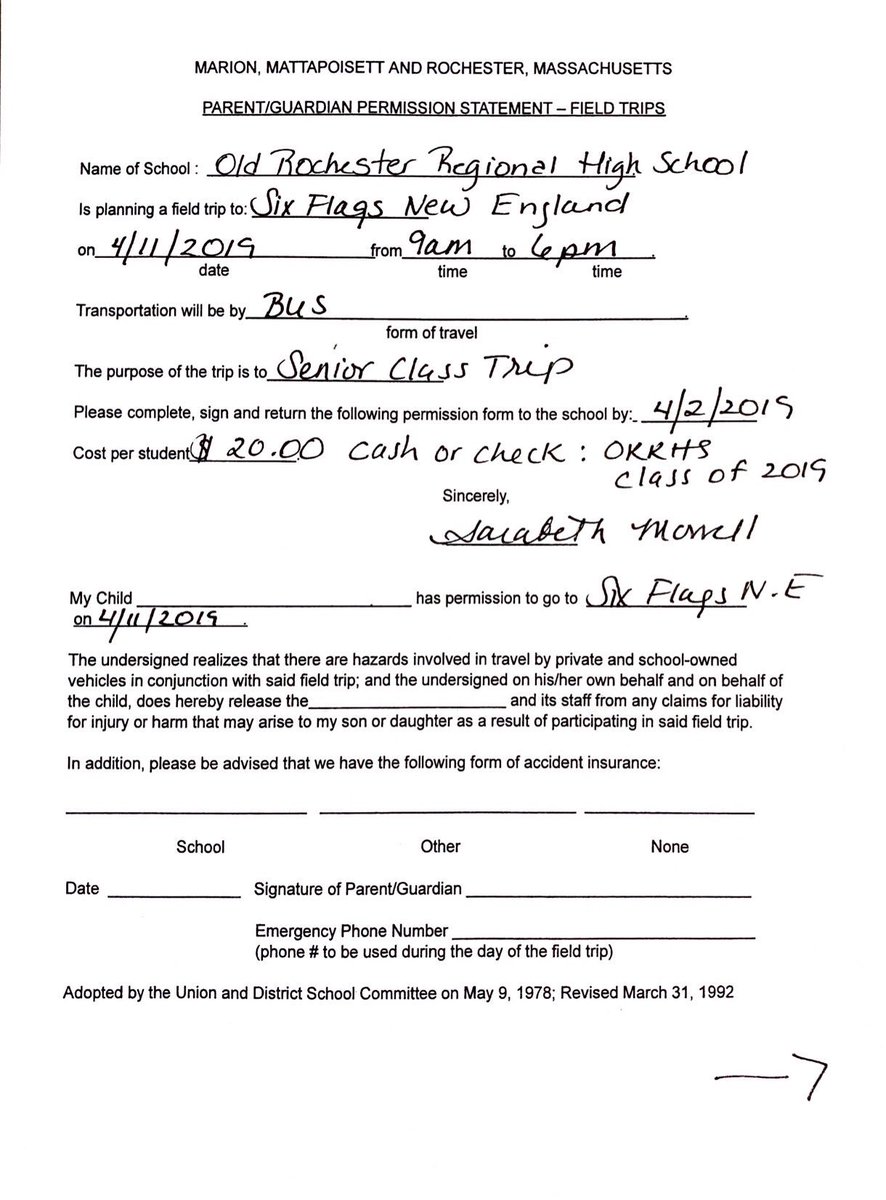 MARION, MATTAPOISETT AND ROCHESTER, MASSACHUSETTS
PARENT/GUARDIAN PERMISSION STATEMENT – FIELD TRIPS
Name of School : Old Rochester Regional High School
Is planning a field trip to: Six Flags New England
on 4/11/2019 from 9am to 6pm.
date time time
Transportation will be by Bus.
form of travel
The purpose of the trip is to Senior Class Trip
Please complete, sign and return the following permission form to the school by: 4/2/2019
Cost per student $ 20.00 Cash or check : ORRHS
class of 2019
Sincerely,
Sarabeth Morrell
My Child has permission to go to Six Flags N.E
on 4/11/2019.
The undersigned realizes that there are hazards involved in travel by private and school-owned
vehicles in conjunction with said field trip; and the undersigned on his/her own behalf and on behalf of
the child, does hereby release the and its staff from any claims for liability
for injury or harm that may arise to my son or daughter as a result of participating in said field trip.
In addition, please be advised that we have the following form of accident insurance:
School Other None
Date Signature of Parent/Guardian
Emergency Phone Number
(phone # to be used during the day of the field trip)
Adopted by the Union and District School Committee on May 9, 1978; Revised March 31, 1992